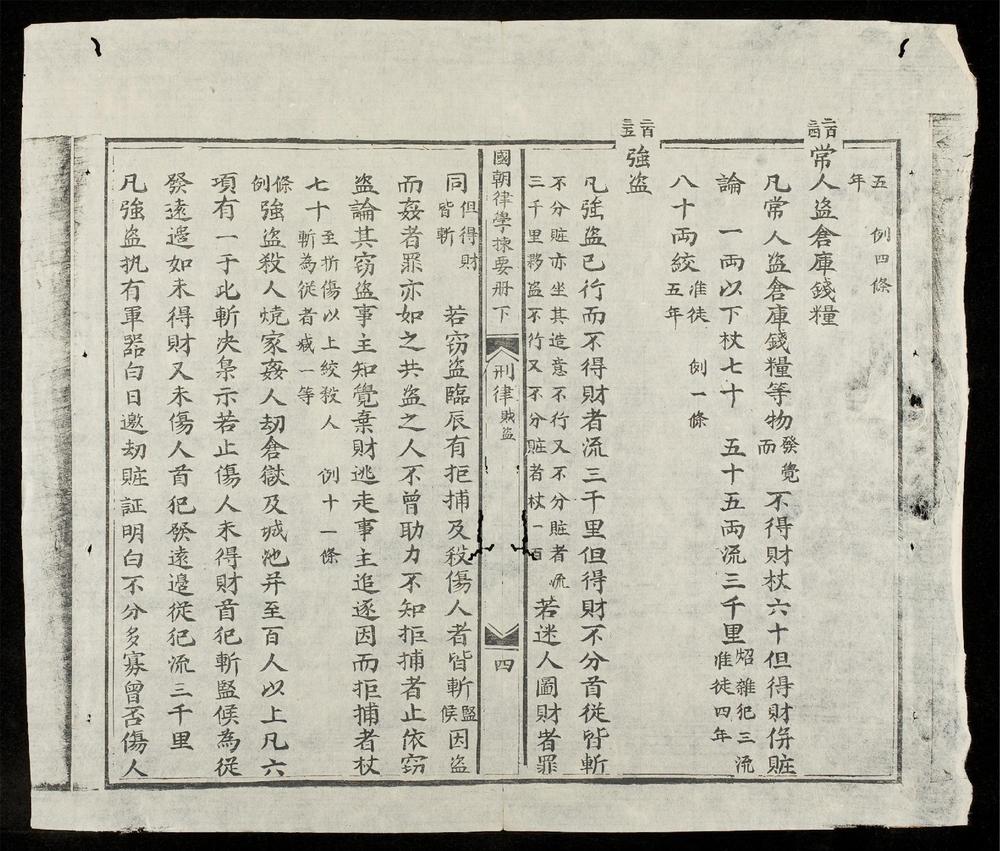 五年 例四條
二百二四 常人盗倉庫錢糧
凡常人盗倉庫錢糧等物發覺而不得財杖六十但得財併賍
論 一兩以下杖七十 五十五兩流三千里炤雜犯三流准徒四年
八十兩絞准徒五年 例一條
二百二五 強盗
凡強盗已行而不得財者流三千里但得財不分首從皆斬
不分賍亦坐其造意不行又不分賍者流三千里夥盗不行又不分賍者杖一百若迷人圖財者罪
國朝律學揀要册下 刑律賊盗 四
同但得財皆斬 若窃盗臨辰有拒捕及殺傷人者皆斬監候因盗
而姦者罪亦如之共盗之人不曾助力不知拒捕者止依窃
盗論其窃盗事主知覺棄財逃走事主追逐因而拒捕者杖
七十至折傷以上絞殺人斬為從者减一等 例十一條
條例強盗殺人燒家姦人刧倉獄及城池并至百人以上凡六
項有一于此斬決梟示若止傷人未得財首犯斬監候為從
發遠邊如未得財又未傷人首犯發遠邉從犯流三千里
凡強盗执有軍器白日邀刧賍証明白不分多寡曾否傷人